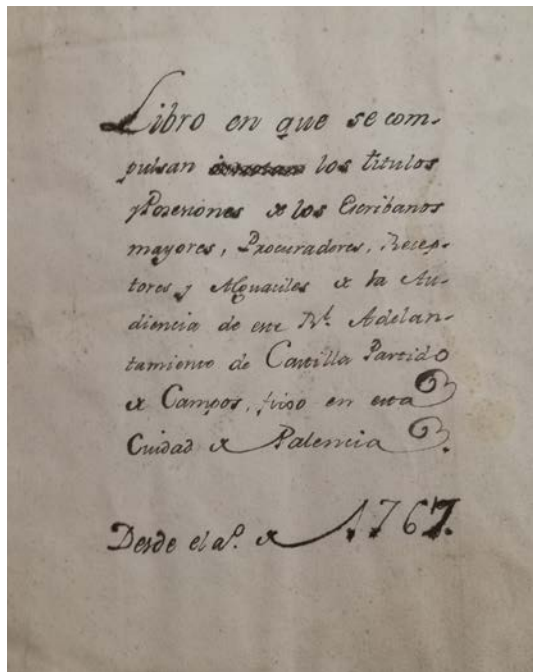 Libro en que se com-
pulsan los titulos
y Posesiones de los Escribanos
mayores, Procuradores, Recep-
tores, y Alguaciles de la Au-
diencia de este Rl. Adelan-
tamiento de Castilla Partido
de Campos, fixo en esta
Cuidad de Palencia.
Desde el aº. de 1767.